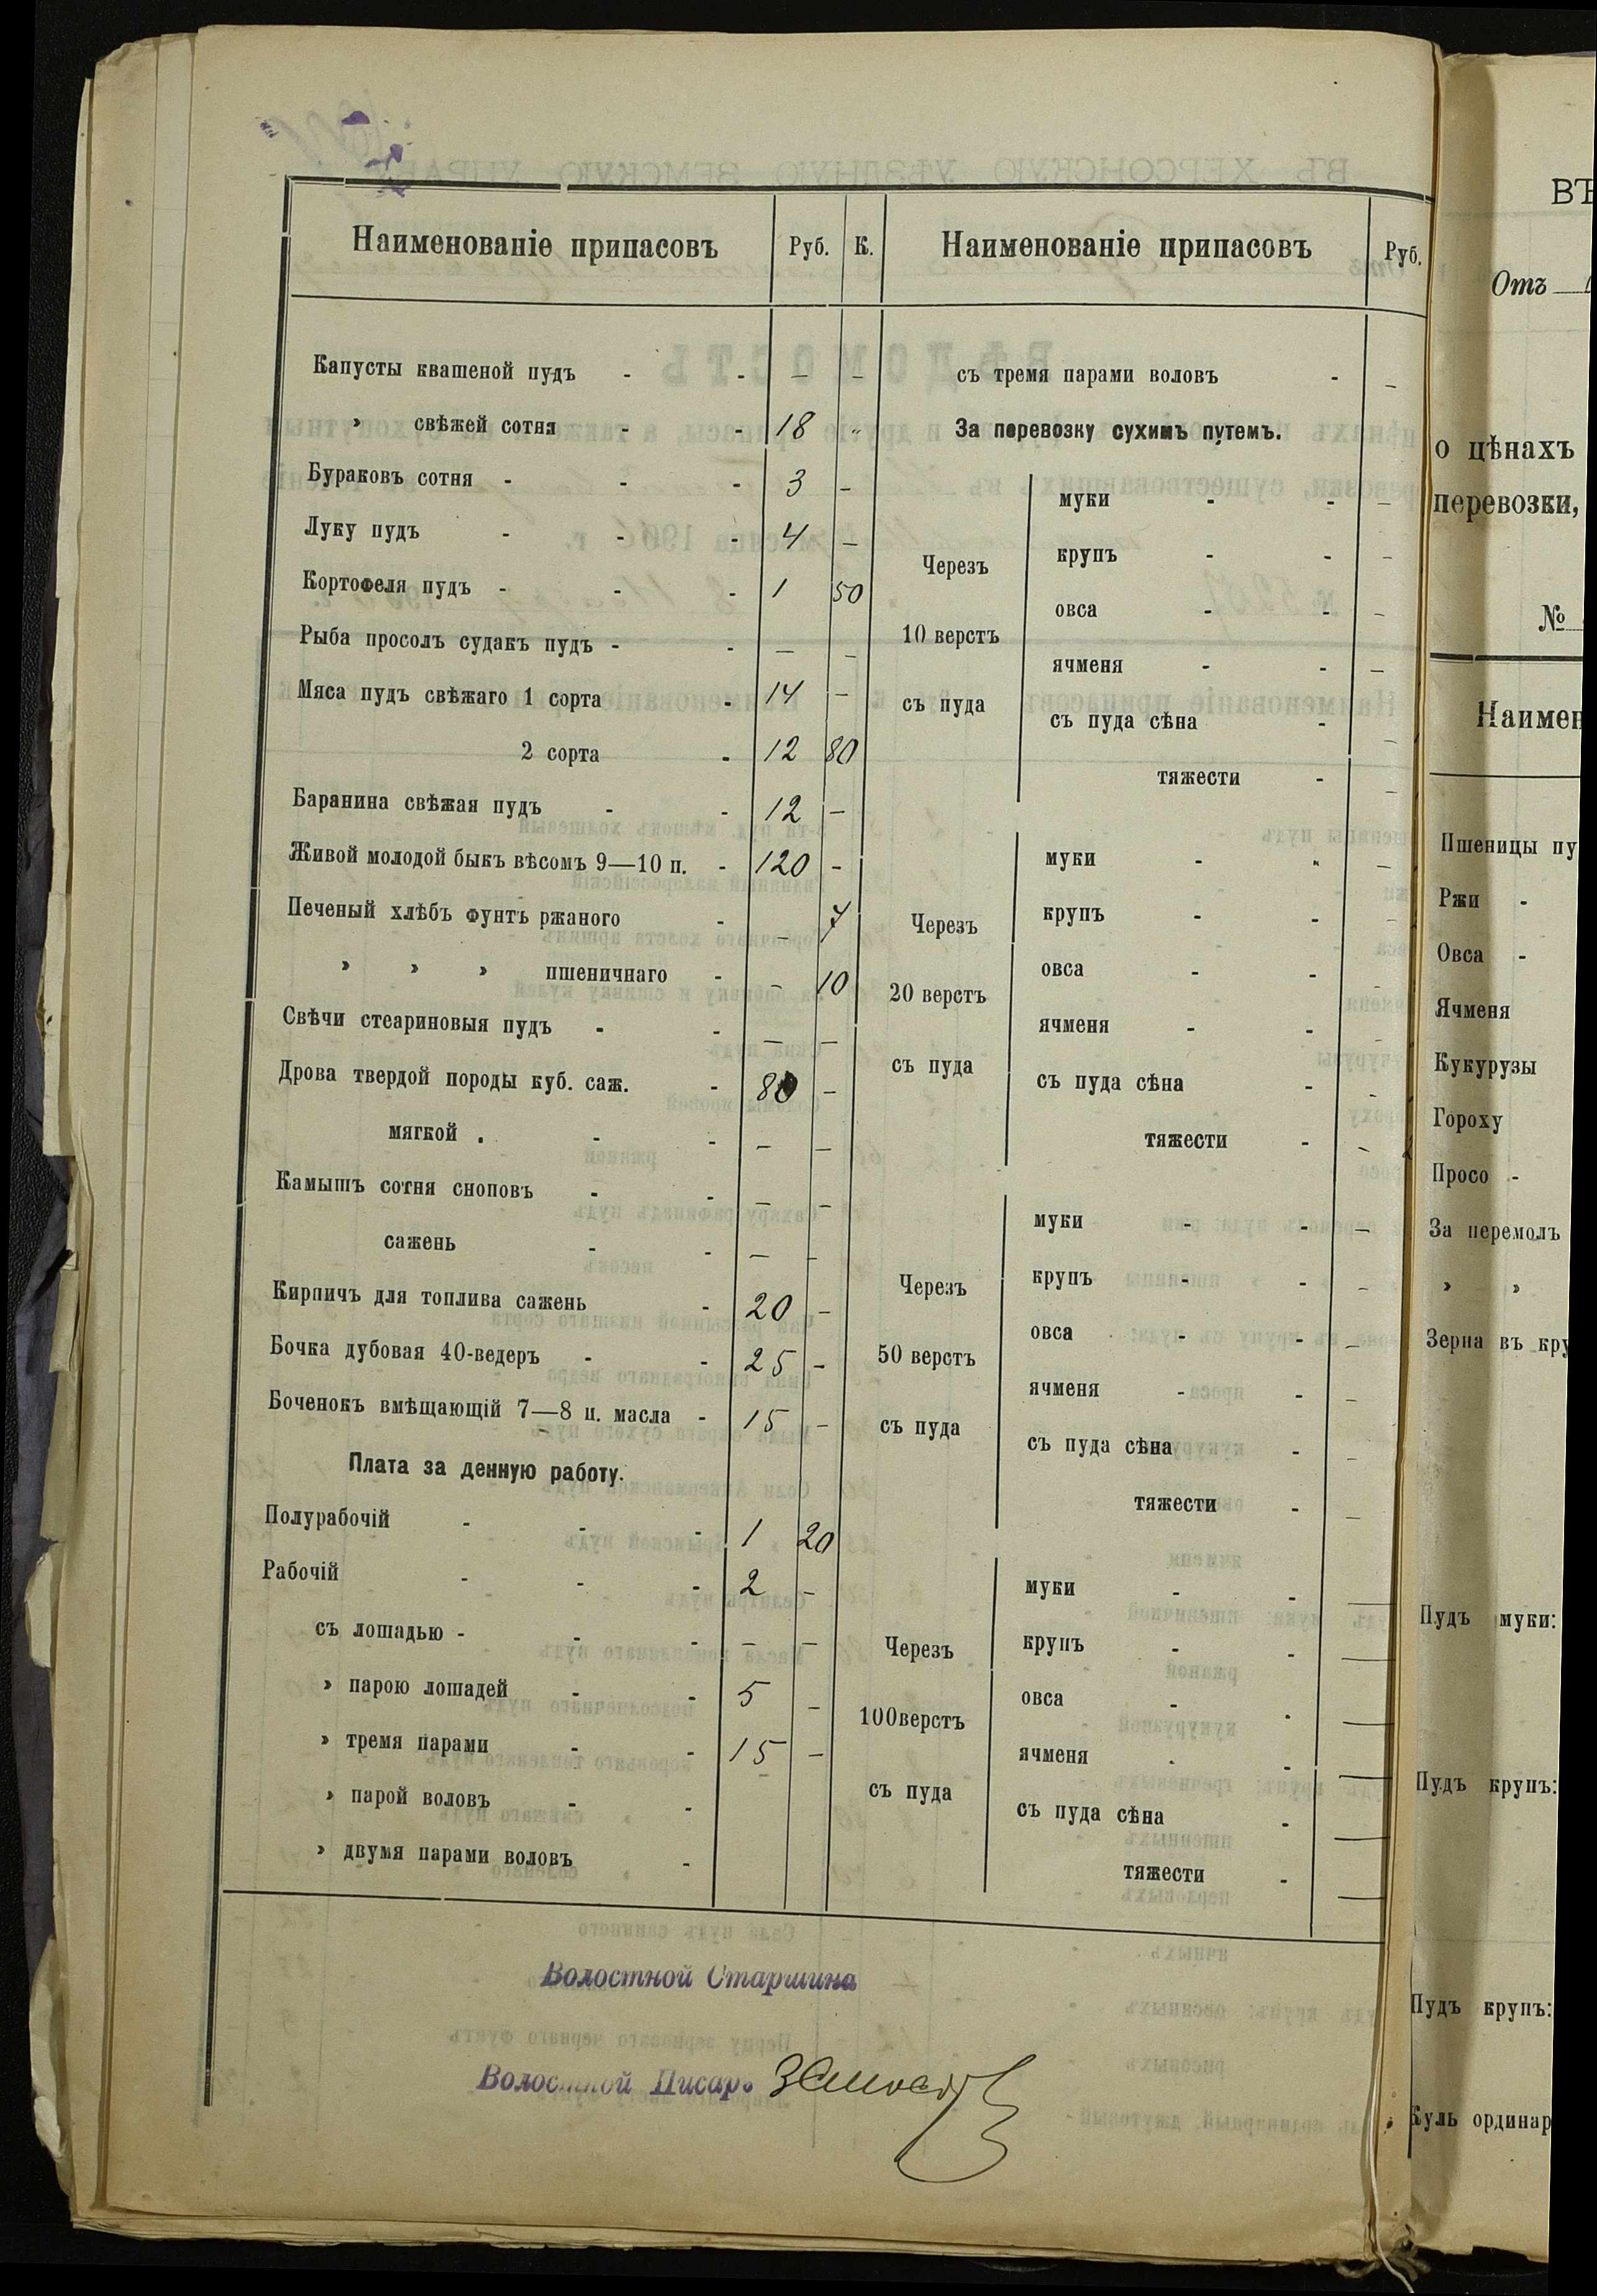 Наименованіе припасовъ Руб. К.
Капусты квашеной пудъ - - — —
» свѣжей сотня - - 18 "
Бураковъ сотня - - - 3 —
Луку пудъ - - - 4 —
Кортофеля пудъ - - - 1 50
Рыба просолъ судакъ пудъ - - — —
Мяса пудъ свѣжаго 1 сорта - 14 —
2 сорта - 12 80
Баранина свѣжая пудъ - - 12 —
Живой молодой быкъ вѣсомъ 9—10 п. - 120 —
Печеный хлѣбъ фунтъ ржаного - — 7
» » » пшеничнаго - — 10
Свѣчи стеариновыя пудъ - - — —
Дрова твердой породы куб. саж. - 80 —
мягкой . - - — —
Камышъ сотня сноповъ - - — —
сажень - - — —
Кирпичъ для топлива сажень - 20 —
Бочка дубовая 40-ведеръ - - 25 —
Боченокъ вмѣщающій 7—8 п. масла - 15 —
Плата за денную работу.
Полурабочій - - - 1 20
Рабочій - - - 2 —
съ лошадью - - - — —
» парою лошадей - - 5 —
» тремя парами - - 15 —
» парой воловъ - -
» двумя парами воловъ -
Наименованіе припасовъ Руб.
съ тремя парами воловъ - —
За перевозку сухимъ путемъ.
Через​ъ 10 верстъ съ пуда
муки - - —
крупъ - - —
овса - - —
ячменя - - —
съ пуда сѣна - —
тяжести - —
Черезъ 20 верстъ съ пуда
муки - - —
крупъ - - —
овса - - —
ячменя - - —
съ пуда сѣна - —
тяжести - —
Черезъ 50 верстъ съ пуда
муки - - —
крупъ - - —
овса - - —
ячменя - - —
съ пуда сѣна - —
тяжести - —
Черезъ 100верстъ съ пуда
муки - - —
крупъ - - —
овса - - —
ячменя - - —
съ пуда сѣна - —
тяжести - —
Волостной Старшина
Волостной Писарь
ВЪ
Отъ
о цѣнахъ
перевозки,
№
Наимен
Пшеницы пу
Ржи -
Овса -
Ячменя
Кукурузы
Гороху
Просо -
За перемолъ
» »
Зерна въ кру
Пудъ муки:
Пудъ крупъ:
Пудъ крупъ:
Куль ординар